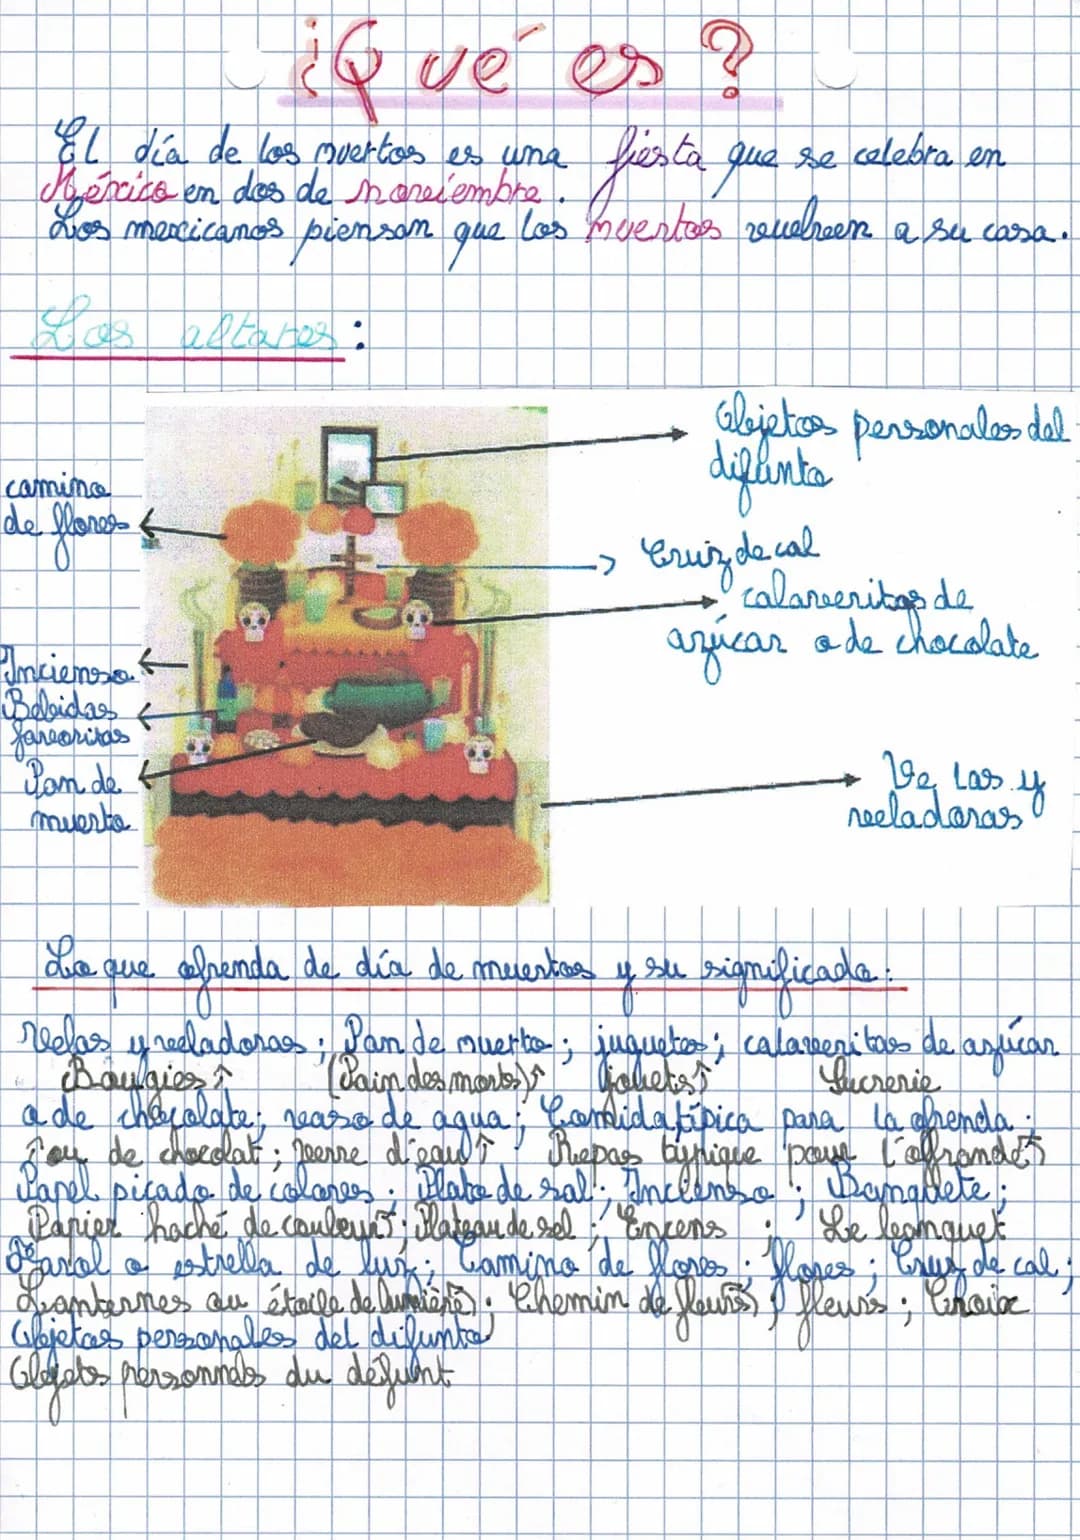 ¿Qué es ?
El día de los muertos es una fiesta que se celebra en
México en dos de noviembre .
Los mexicanos piensan que los muertos vuelven a su casa.
Los altares :
Objetos personales del
difunto
camino
de flores
Cruz de cal
calaveritas de
azúcar o de chocolate
Incienso
Bebidas
favoritas
Pan de
muerto
Ve las y
veladoras
Lo que ofrenda de día de muertos y su significado :
Velas y veladoras ; Pan de muerto ; juguetes ; calaveritas de azúcar
Bougies ↑ (Pain des morts)↑ jouets↑ Sucrerie
o de chocolate ; vaso de agua ; Comida típica para la ofrenda ;
↑ ou de chocolat ; verre d'eau ↑ Repas typique pour l'offrande↑
Papel picado de colores ; Plato de sal ; Incienso ; Banquete ;
Papier haché de couleur↑ ; Plateau de sel ; Encens ; Le banquet
Farol o estrella de luz ; Camino de flores ; flores ; Cruz de cal ;
Lanternes ou étoile de lumière ; Chemin de fleurs ; fleurs ; Croix
Objetos personales del difunto
Objets personnels du défunt